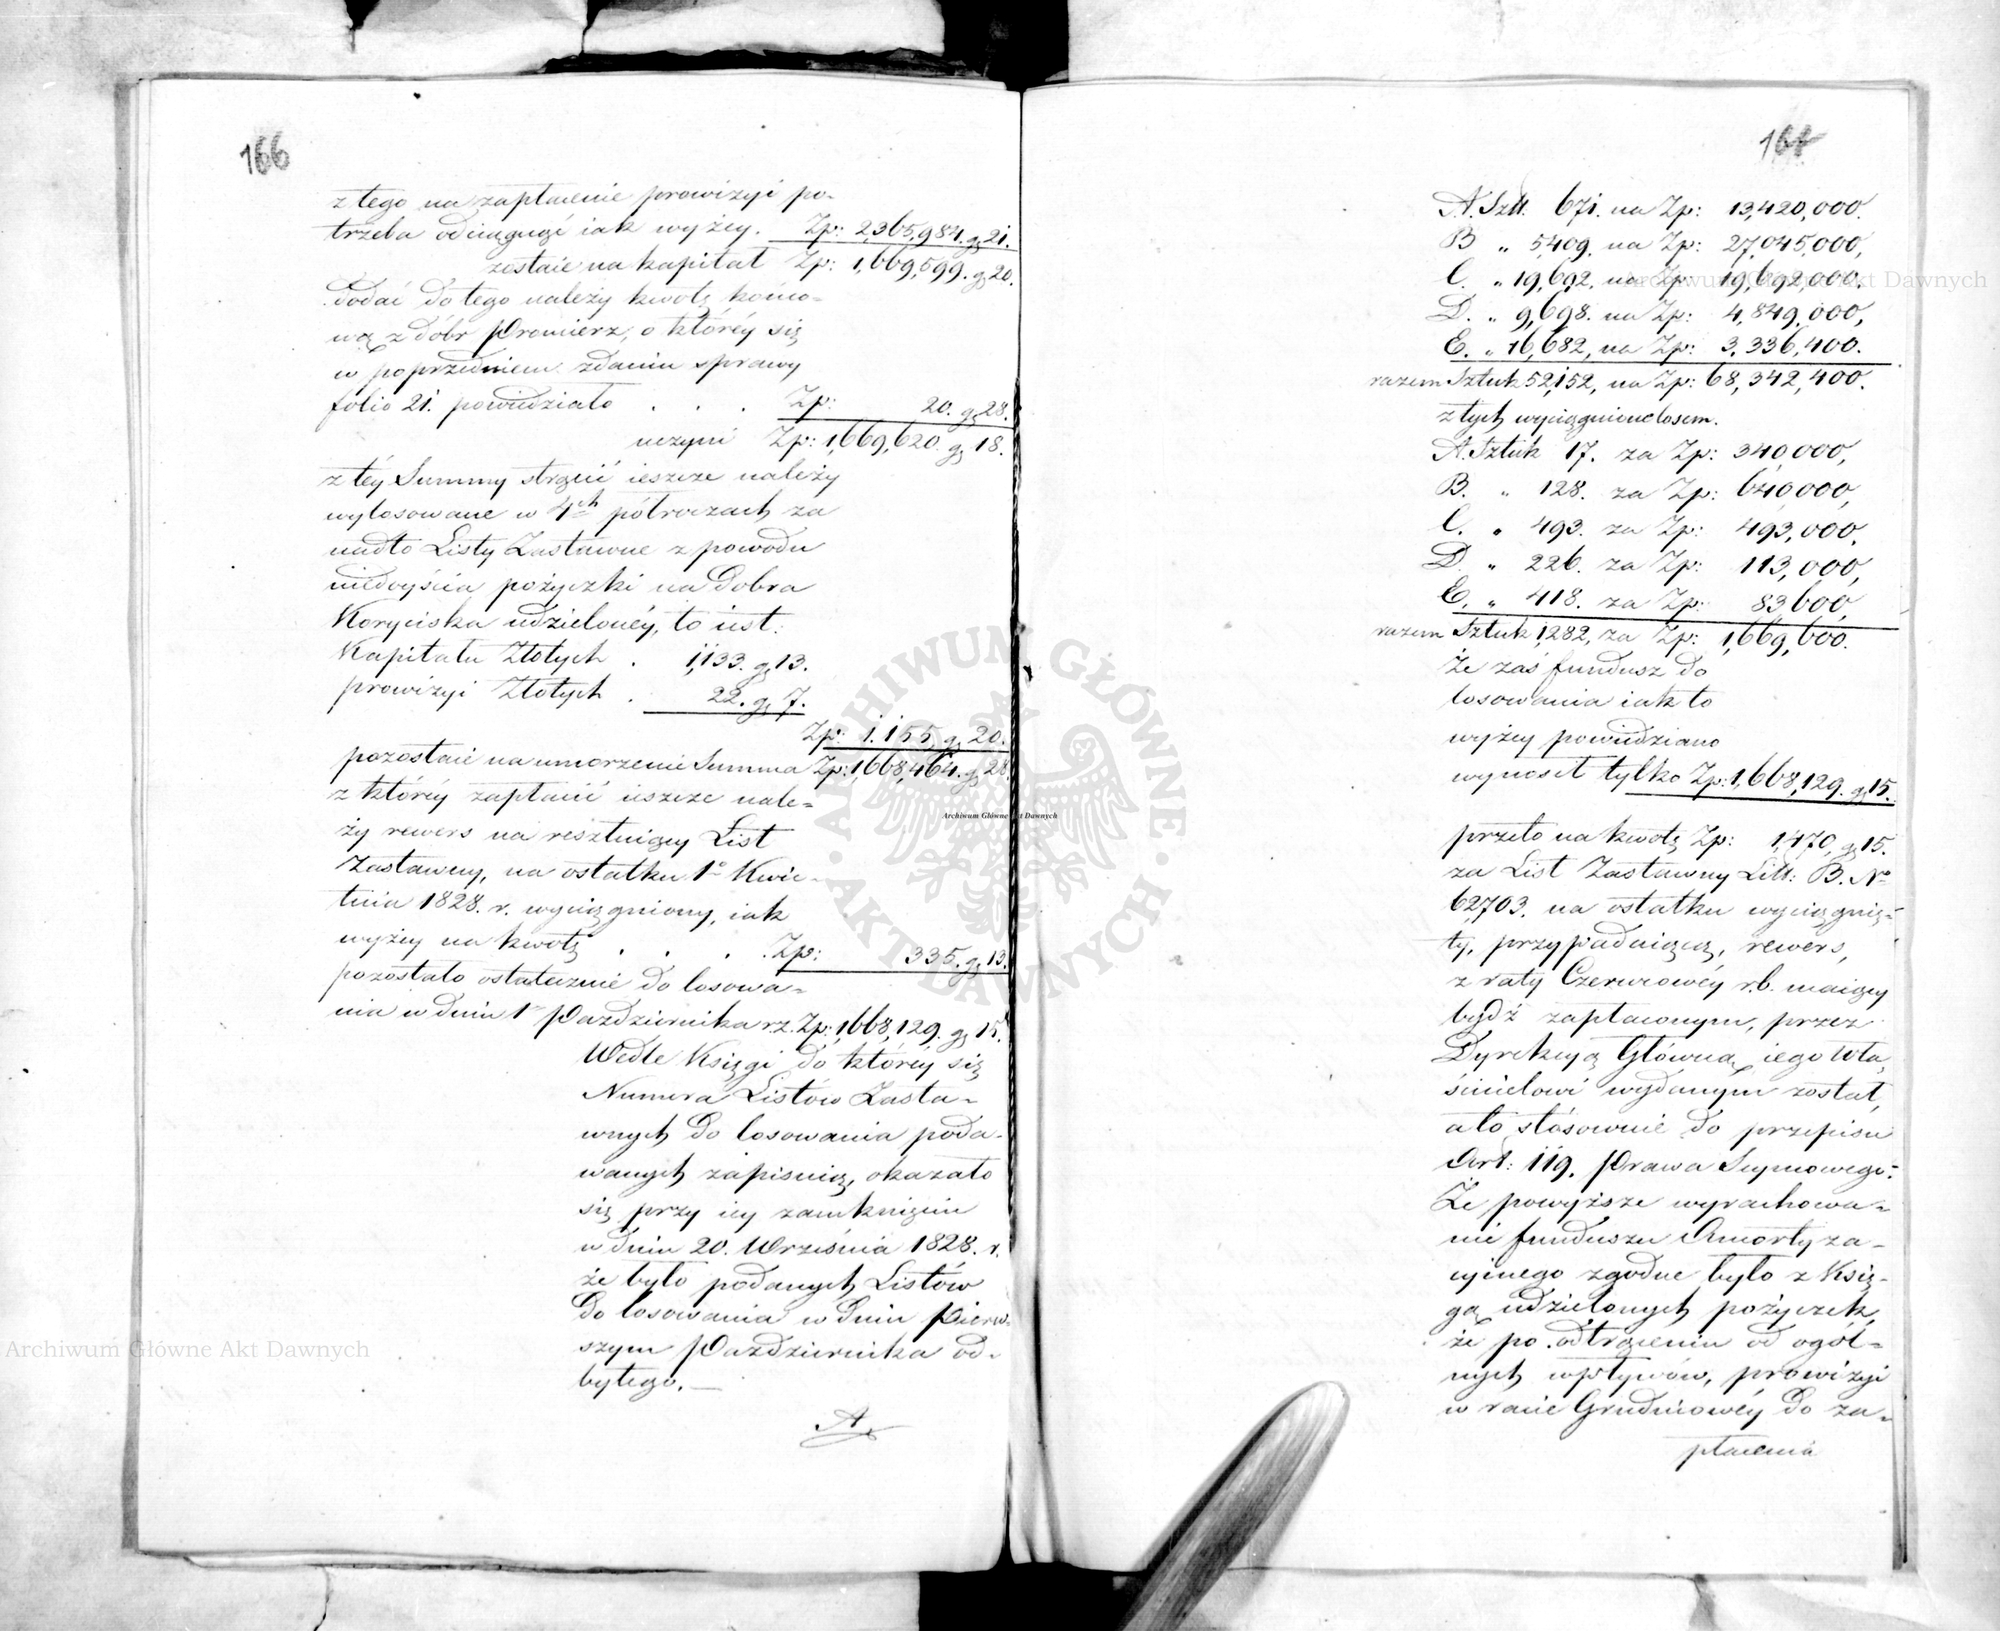 166
z tego na zapłacenie prowizyi po-
trzeba odciągnąć iak wyżey. Zp: 2,365,984. g 21.
zostaie na kapitał Zp: 1,669,599. g 20.
dodać do tego należy kwotę końco-
wą z dóbr Promierz, o któréy się
w poprzedniem zdaniu sprawy
folio 21. powiedziało . . . Zp: 20. g 28.
uczyni Zp: 1,669,620. g 18.
z téy Summy strącić ieszcze należy
wylosowane w 4ch półroczach za
nadto Listy Zastawne z powodu
niedoyścia pożyczki na Dobra
Koryciska udzielonéy, to iest:
Kapitału Złotych . 1,133. g 13.
prowizyi Złotych . 22. g 7.
Zp: 1.155. g 20.
pozostaie na umorzenie Summa Zp: 1,668,464. g 28.
z któréy zapłacić ieszcze nale=
ży rewers na resztuiący List
Zastawny, na ostatku 1o Kwie-
tnia 1828. r. wyciągniony, iak
wyżey na kwotę . . . . Zp: 335. g 13.
pozostało ostatecznie do losowa=
nia w dniu 1m Pazdziernika r.z. Zp: 1,668,129. g 15.
Wedle Księgi do któréy się
Numera Listów Zasta-
wnych do losowania poda-
wanych zapisuią, okazało
się przy iey zamknięciu
w dniu 20. Września 1828. r.
że było podanych Listów
do losowania w dniu Pierw-
szym Pazdziernika od-
bytego. —
A.
A. Sztt. 671. na Zp: 13,420,000.
B „ 5,409. na Zp: 27,045,000,
C. „ 19,692. na Zp: 19,692,000.
D. „ 9,698. na Zp: 4,849,000,
E. „ 16,682, na Zp: 3,336,400.
razem Sztuk 52,152, na Zp: 68,342,400.
z tych wyciągnione losem.
A. Sztuk 17. za Zp: 340,000,
B. „ 128. za Zp: 640,000,
C. „ 493. za Zp: 493,000,
D. „ 226. za Zp: 113,000,
E. „ 418. za Zp: 83,600,
razem Sztuk 1,282, za Zp: 1,669,600.
Że zaś fundusz do
losowania iak to
wyżey powiedziano
wynosił tylko Zp: 1,668,129. g 15.
przeto na kwotę Zp: 1,470, g 15.
za List Zastawny Litt: B. No
62,703. na ostatku wyciągnię-
ty, przypadaiącą, rewers,
z raty Czerwcowéy r.b. maiący
bydź zapłaconym, przez
Dyrekcyą Główną iego Wła
ścicielowi wydanym został,
a to stósownie do przepisu
Art: 119. Prawa Seymowego:
Że powyższe wyrachowa=
nie funduszu Amortyza-
cyinego zgodne było z Księ-
gą udzielonych pożyczek,
że po odtrąceniu od ogól=
nych wpływów, prowizyi
w racie Grudniowéy do za-
płacenia
Archiwum Główne Akt Dawnych
Archiwum Główne Akt Dawnych
Archiwum Główne Akt Dawnych
ARCHIWUM GŁÓWNE AKT DAWNYCH